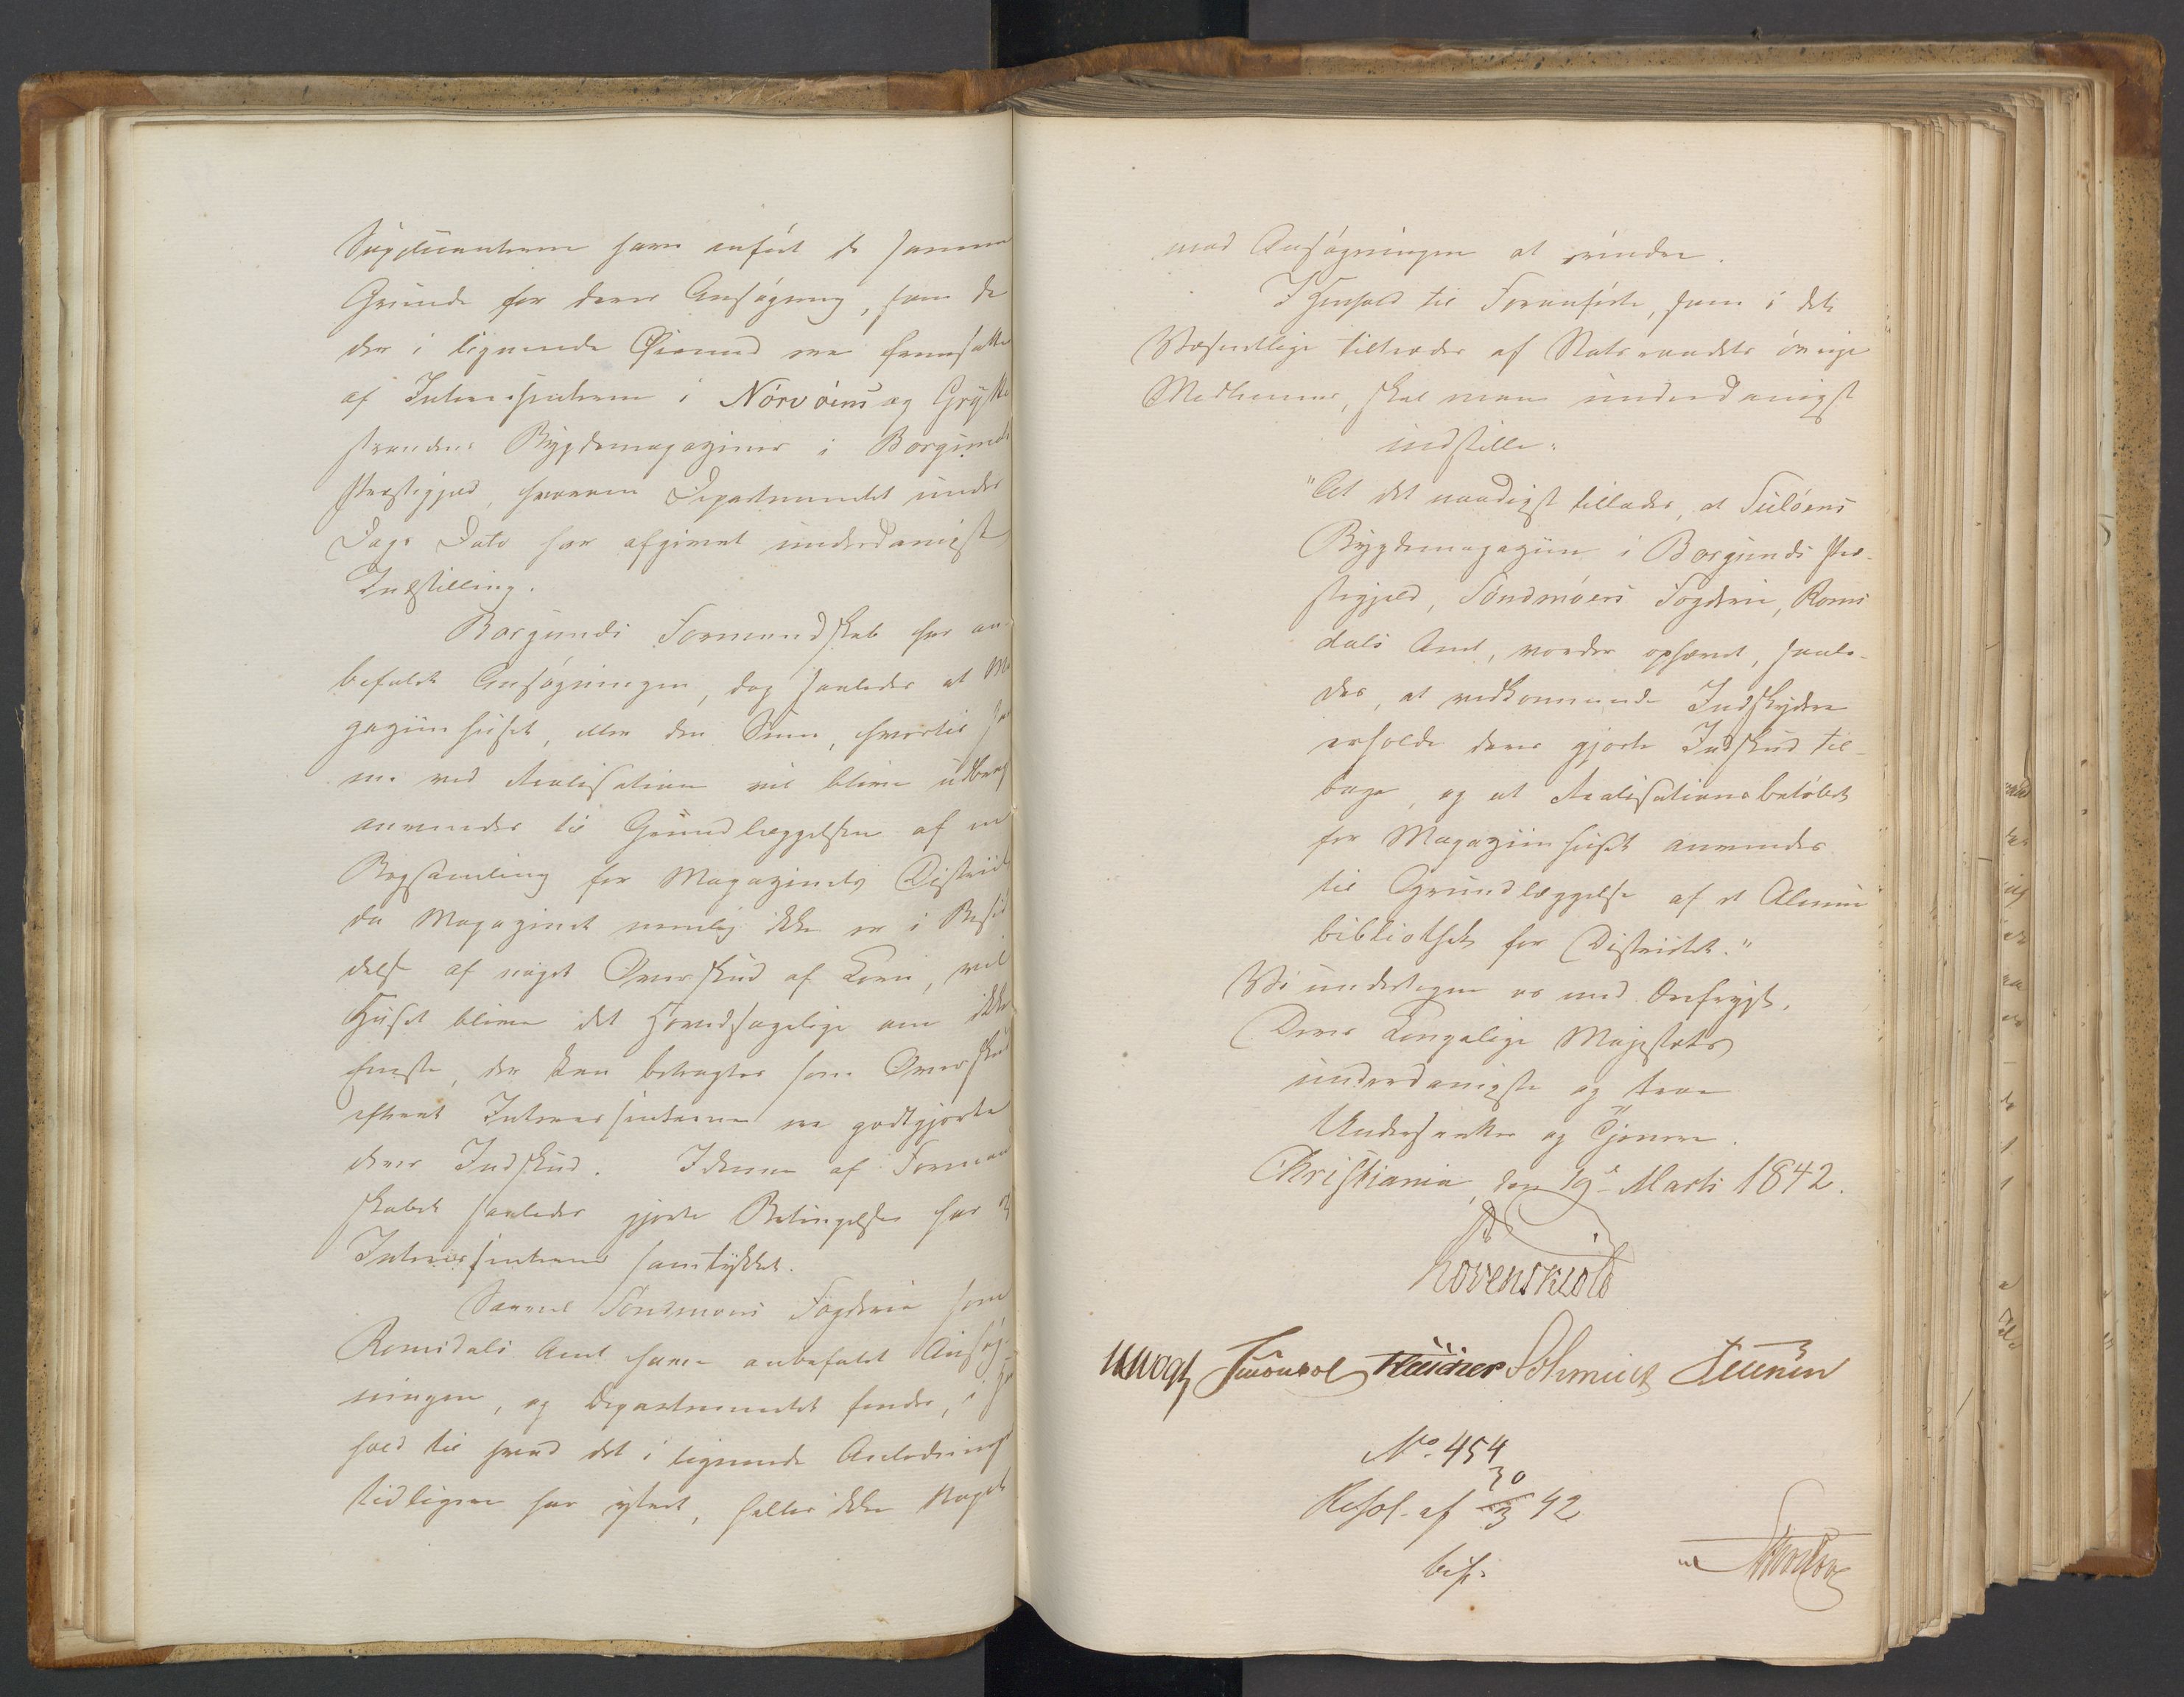 Supplicanterne have anført de samme
Grunde for deres Ansøgning, som de
der i lignende Øiemed ere fremsatte
af Interessenterne i Nørvøens og Grytte
strandens Bygdemagaziner i Borgunds
Præstegjeld, hvorom Departementet under
Dags Dato har afgivet underdanigst
Indstilling.
Borgunds Formandskab har an-
befalet Ansøgningen, dog saaledes at Ma
gaziinhuset, eller den Sum, hvortil sam
me ved Realisation vil blive udbragt
anvendes til Grundlæggelsen af en
Bogsamling for Magazinets District
da Magazinet nemlig ikke er i Besid
delse af noget Overskud af Korn, vil
Huset blive det Hovedsagelige om ikke
Eneste, der kan betragtes som Overskud
efterat Interessenterne ere godtgjorte
deres Indskud. I denne af Formand
skabet saaledes gjorte Betingelse har
Interessenterne samtykket.
Saavel Søndmøers Fogderie som
Romsdals Amt have anbefalet Ansøg-
ningen, og Departementet finder, i Hen
hold til hvad det i lignende Anledning
tidligere har yttret, heller ikke Noget
mod Ansøgningen at erindre.
I Henhold til Foranførte, som i det
Væsentlige tiltrædes af Statsraadets øvrige
Medlemmer, skal man underdanigst
indstille:
"At det naadigst tillades, at Suløens
Bygdemagaziin i Borgunds Præ-
stegjeld, Søndmøers Fogderie, Roms
dals Amt, vorder ophævet, saale-
des, at vedkommende Indskydere
erholde deres gjorte Indskud til-
bage, og at Realisationsbeløbet
for Magaziinhuset anvendes
til Grundlæggelse af et Almue
bibliothek for Districtet."
Vi undertegne os med Ærefrygt,
Deres Kongelige Majestæts
underdanigste og troe
Undersaatter og Tjenere.
Christiania, den 19de Marts 1842.
Løvenskiold
Vogt Schmidt
No. 454
Resol. af 30/3 42
bif.